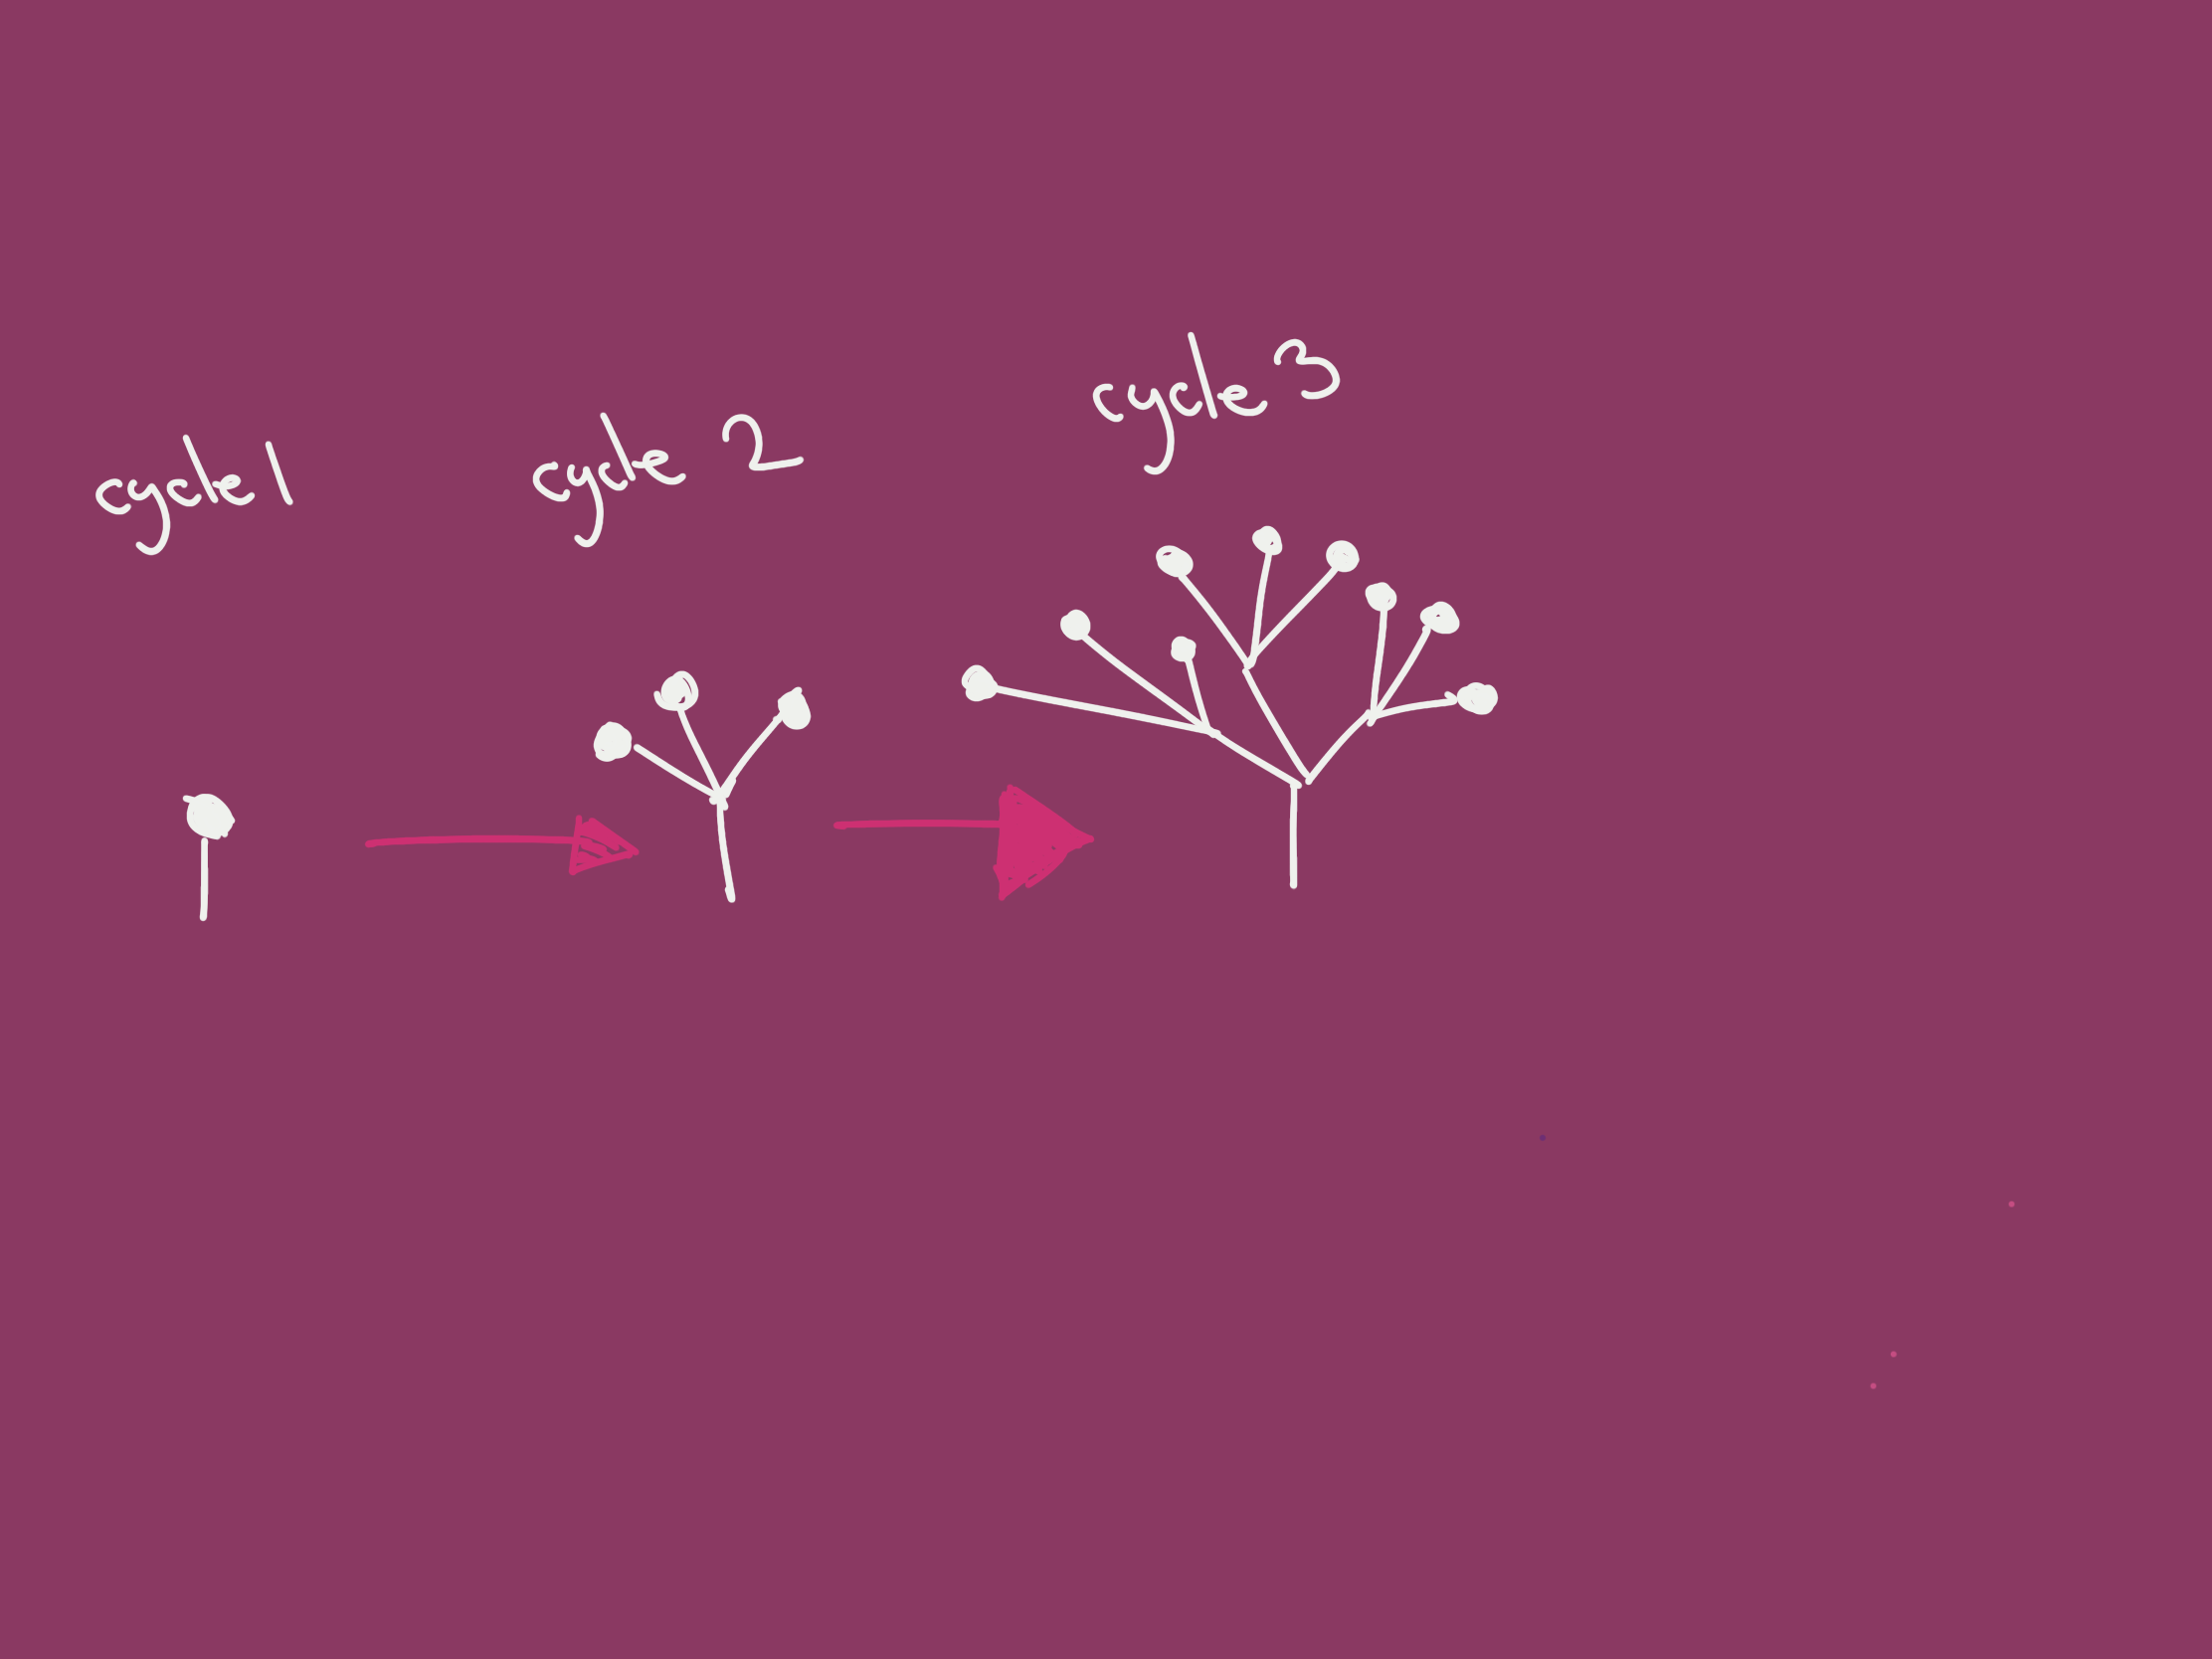 cycle 1
cycle 2
cycle 3